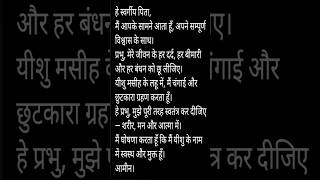 हे स्वर्गीय पिता,
मैं आपके सामने आता हूँ, अपने सम्पूर्ण
विश्वास के साथ।
प्रभु, मेरे जीवन के हर दर्द, हर बीमारी
और हर बंधन को छू लीजिए।
यीशु मसीह के लहू में, मैं चंगाई और
छुटकारा ग्रहण करता हूँ।
हे प्रभु, मुझे पूरी तरह स्वतंत्र कर दीजिए
— शरीर, मन और आत्मा में।
मैं घोषणा करता हूँ कि मैं यीशु के नाम
में स्वस्थ और मुक्त हूँ।
आमीन।